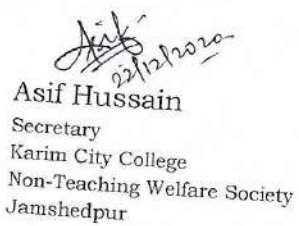 Asif
22/12/2020
Asif Hussain
Secretary
Karim City College
Non-Teaching Welfare Society
Jamshedpur